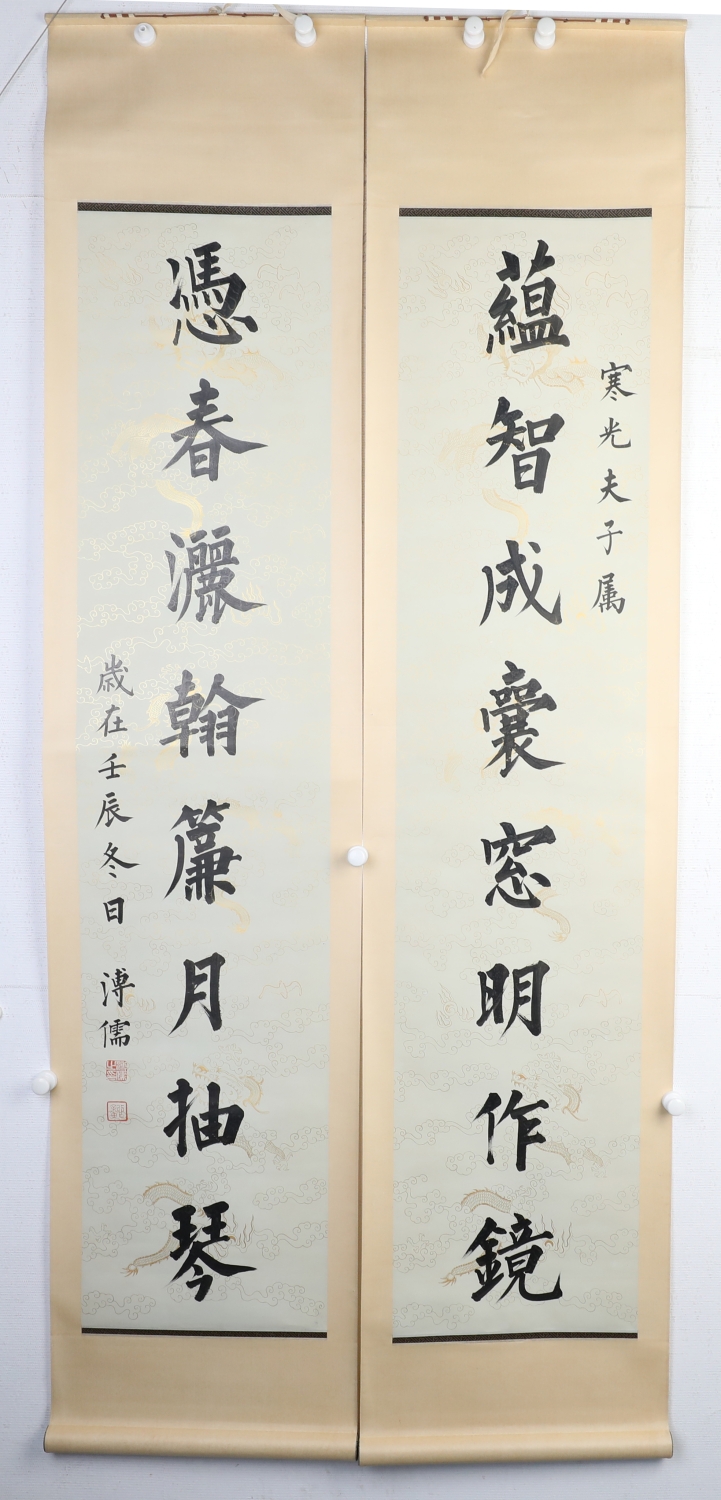 寒光夫子属
蘊智成囊窓明作鏡
憑春灑翰簾月抽琴
歲在壬辰冬日 溥儒